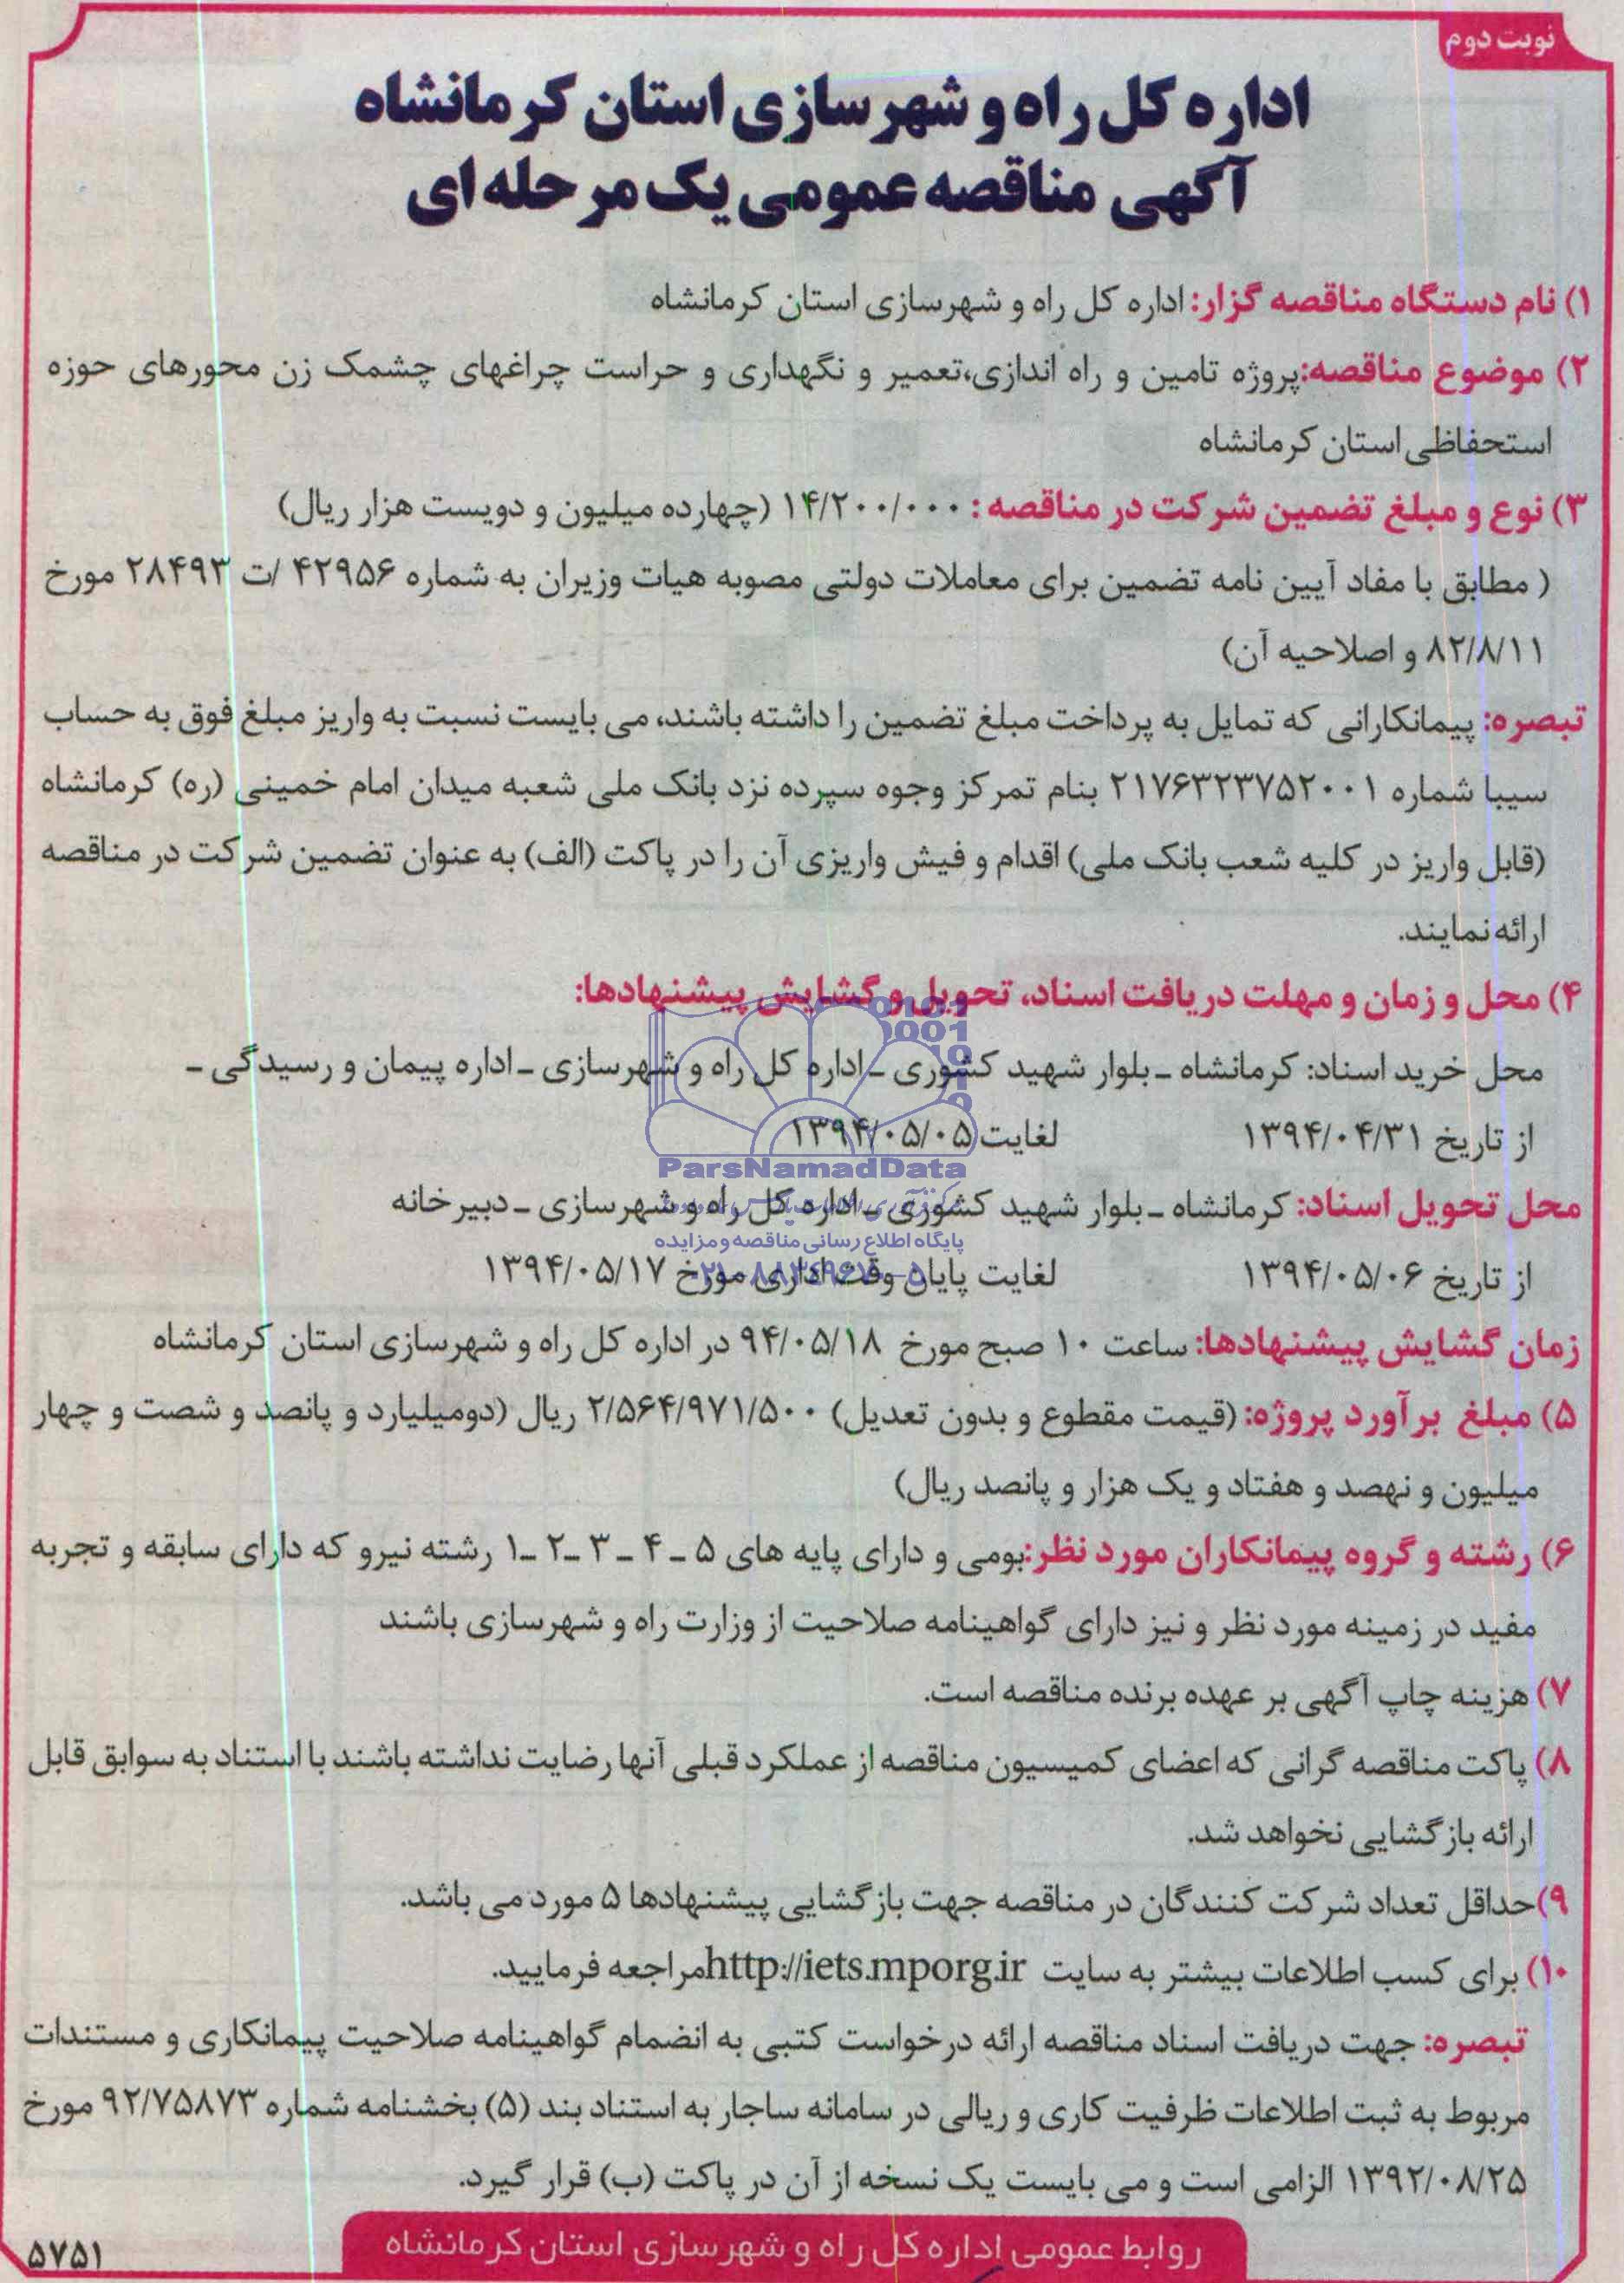 نوبت دوم
اداره کل راه و شهرسازی استان کرمانشاه
آگهی مناقصه عمومی یک مرحله ای
۱) نام دستگاه مناقصه گزار: اداره کل راه و شهرسازی استان کرمانشاه
۲) موضوع مناقصه:پروژه تامین و راه اندازی،تعمیر و نگهداری و حراست چراغهای چشمک زن محورهای حوزه
استحفاظی استان کرمانشاه
۳) نوع و مبلغ تضمین شرکت در مناقصه : ۱۴/۲۰۰/۰۰۰ (چهارده میلیون و دویست هزار ریال)
( مطابق با مفاد آیین نامه تضمین برای معاملات دولتی مصوبه هیات وزیران به شماره ۴۲۹۵۶ /ت ۲۸۴۹۳ مورخ
۸۲/۸/۱۱ و اصلاحیه آن)
تبصره: پیمانکارانی که تمایل به پرداخت مبلغ تضمین را داشته باشند، می بایست نسبت به واریز مبلغ فوق به حساب
سیبا شماره ۲۱۷۶۳۲۳۷۵۲۰۰۱ بنام تمرکز وجوه سپرده نزد بانک ملی شعبه میدان امام خمینی (ره) کرمانشاه
(قابل واریز در کلیه شعب بانک ملی) اقدام و فیش واریزی آن را در پاکت (الف) به عنوان تضمین شرکت در مناقصه
ارائه نمایند.
۴) محل و زمان و مهلت دریافت اسناد، تحویل و گشایش پیشنهادها:
محل خرید اسناد: کرمانشاه ـ بلوار شهید کشوری ـ اداره کل راه و شهرسازی ـ اداره پیمان و رسیدگی ـ
از تاریخ ۱۳۹۴/۰۴/۳۱ لغایت ۱۳۹۴/۰۵/۰۵
ParsNamadData
محل تحویل اسناد: کرمانشاه ـ بلوار شهید کشوری ـ اداره کل راه و شهرسازی ـ دبیرخانه
پایگاه اطلاع رسانی مناقصه و مزایده
از تاریخ ۱۳۹۴/۰۵/۰۶ لغایت پایان وقت اداری مورخ ۱۳۹۴/۰۵/۱۷
زمان گشایش پیشنهادها: ساعت ۱۰ صبح مورخ ۹۴/۰۵/۱۸ در اداره کل راه و شهرسازی استان کرمانشاه
۵) مبلغ برآورد پروژه: (قیمت مقطوع و بدون تعدیل) ۲/۵۶۴/۹۷۱/۵۰۰ ریال (دومیلیارد و پانصد و شصت و چهار
میلیون و نهصد و هفتاد و یک هزار و پانصد ریال)
۶) رشته و گروه پیمانکاران مورد نظر:بومی و دارای پایه های ۵ ـ ۴ ـ ۳ ـ۲ ـ۱ رشته نیرو که دارای سابقه و تجربه
مفید در زمینه مورد نظر و نیز دارای گواهینامه صلاحیت از وزارت راه و شهرسازی باشند
۷) هزینه چاپ آگهی بر عهده برنده مناقصه است.
۸) پاکت مناقصه گرانی که اعضای کمیسیون مناقصه از عملکرد قبلی آنها رضایت نداشته باشند با استناد به سوابق قابل
ارائه بازگشایی نخواهد شد.
۹)حداقل تعداد شرکت کنندگان در مناقصه جهت بازگشایی پیشنهادها ۵ مورد می باشد.
۱۰) برای کسب اطلاعات بیشتر به سایت http://iets.mporg.ir مراجعه فرمایید.
تبصره: جهت دریافت اسناد مناقصه ارائه درخواست کتبی به انضمام گواهینامه صلاحیت پیمانکاری و مستندات
مربوط به ثبت اطلاعات ظرفیت کاری و ریالی در سامانه ساجار به استناد بند (۵) بخشنامه شماره ۹۲/۷۵۸۷۳ مورخ
۱۳۹۲/۰۸/۲۵ الزامی است و می بایست یک نسخه از آن در پاکت (ب) قرار گیرد.
روابط عمومی اداره کل راه و شهرسازی استان کرمانشاه
۵۷۵۱